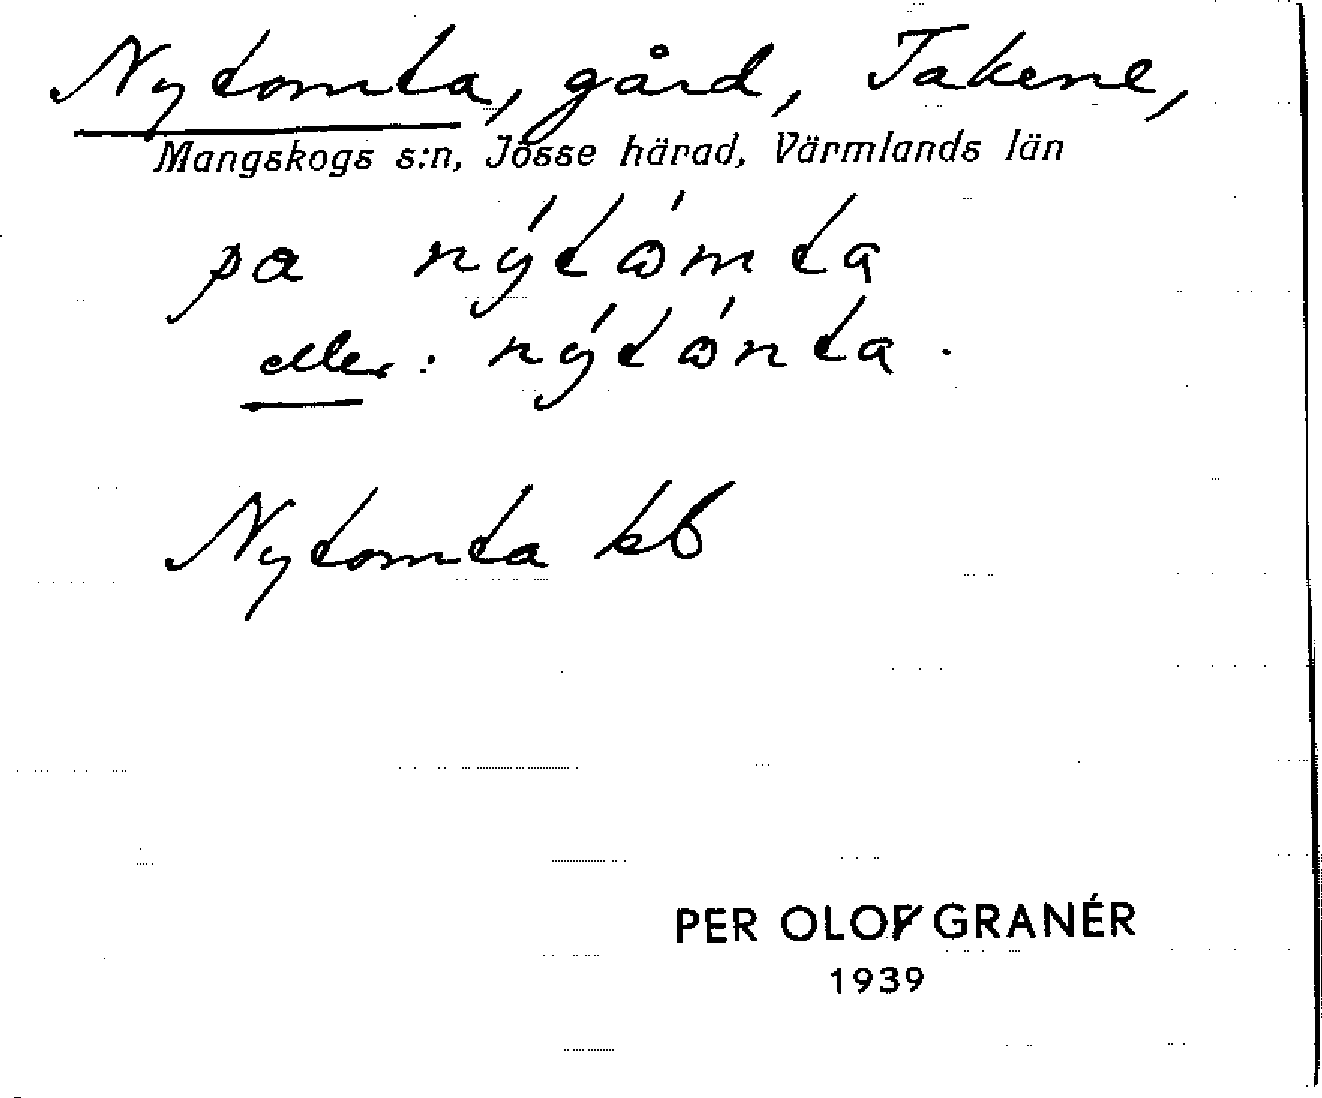 Nytomta, gård, Takene,
Mangskogs s:n, Jösse härad, Värmlands län
pa nýtώmta
eller: nýtώnta.
Nytomta kb
PER OLOF GRANÉR
1939